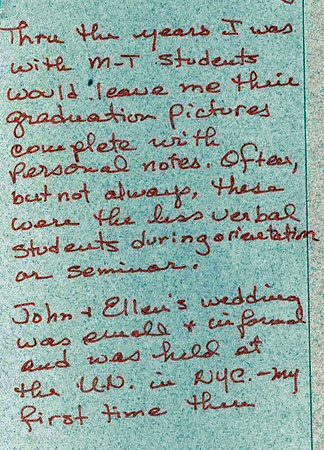 Thru the years I was
with M-T students
would leave me their
graduation pictures
complete with
personal notes. Often,
but not always, these
were the less verbal
students during orientation
or seminar.
John + Ellen's wedding
was small + informal
and was held at
the U.N. in NYC. - my
first time there